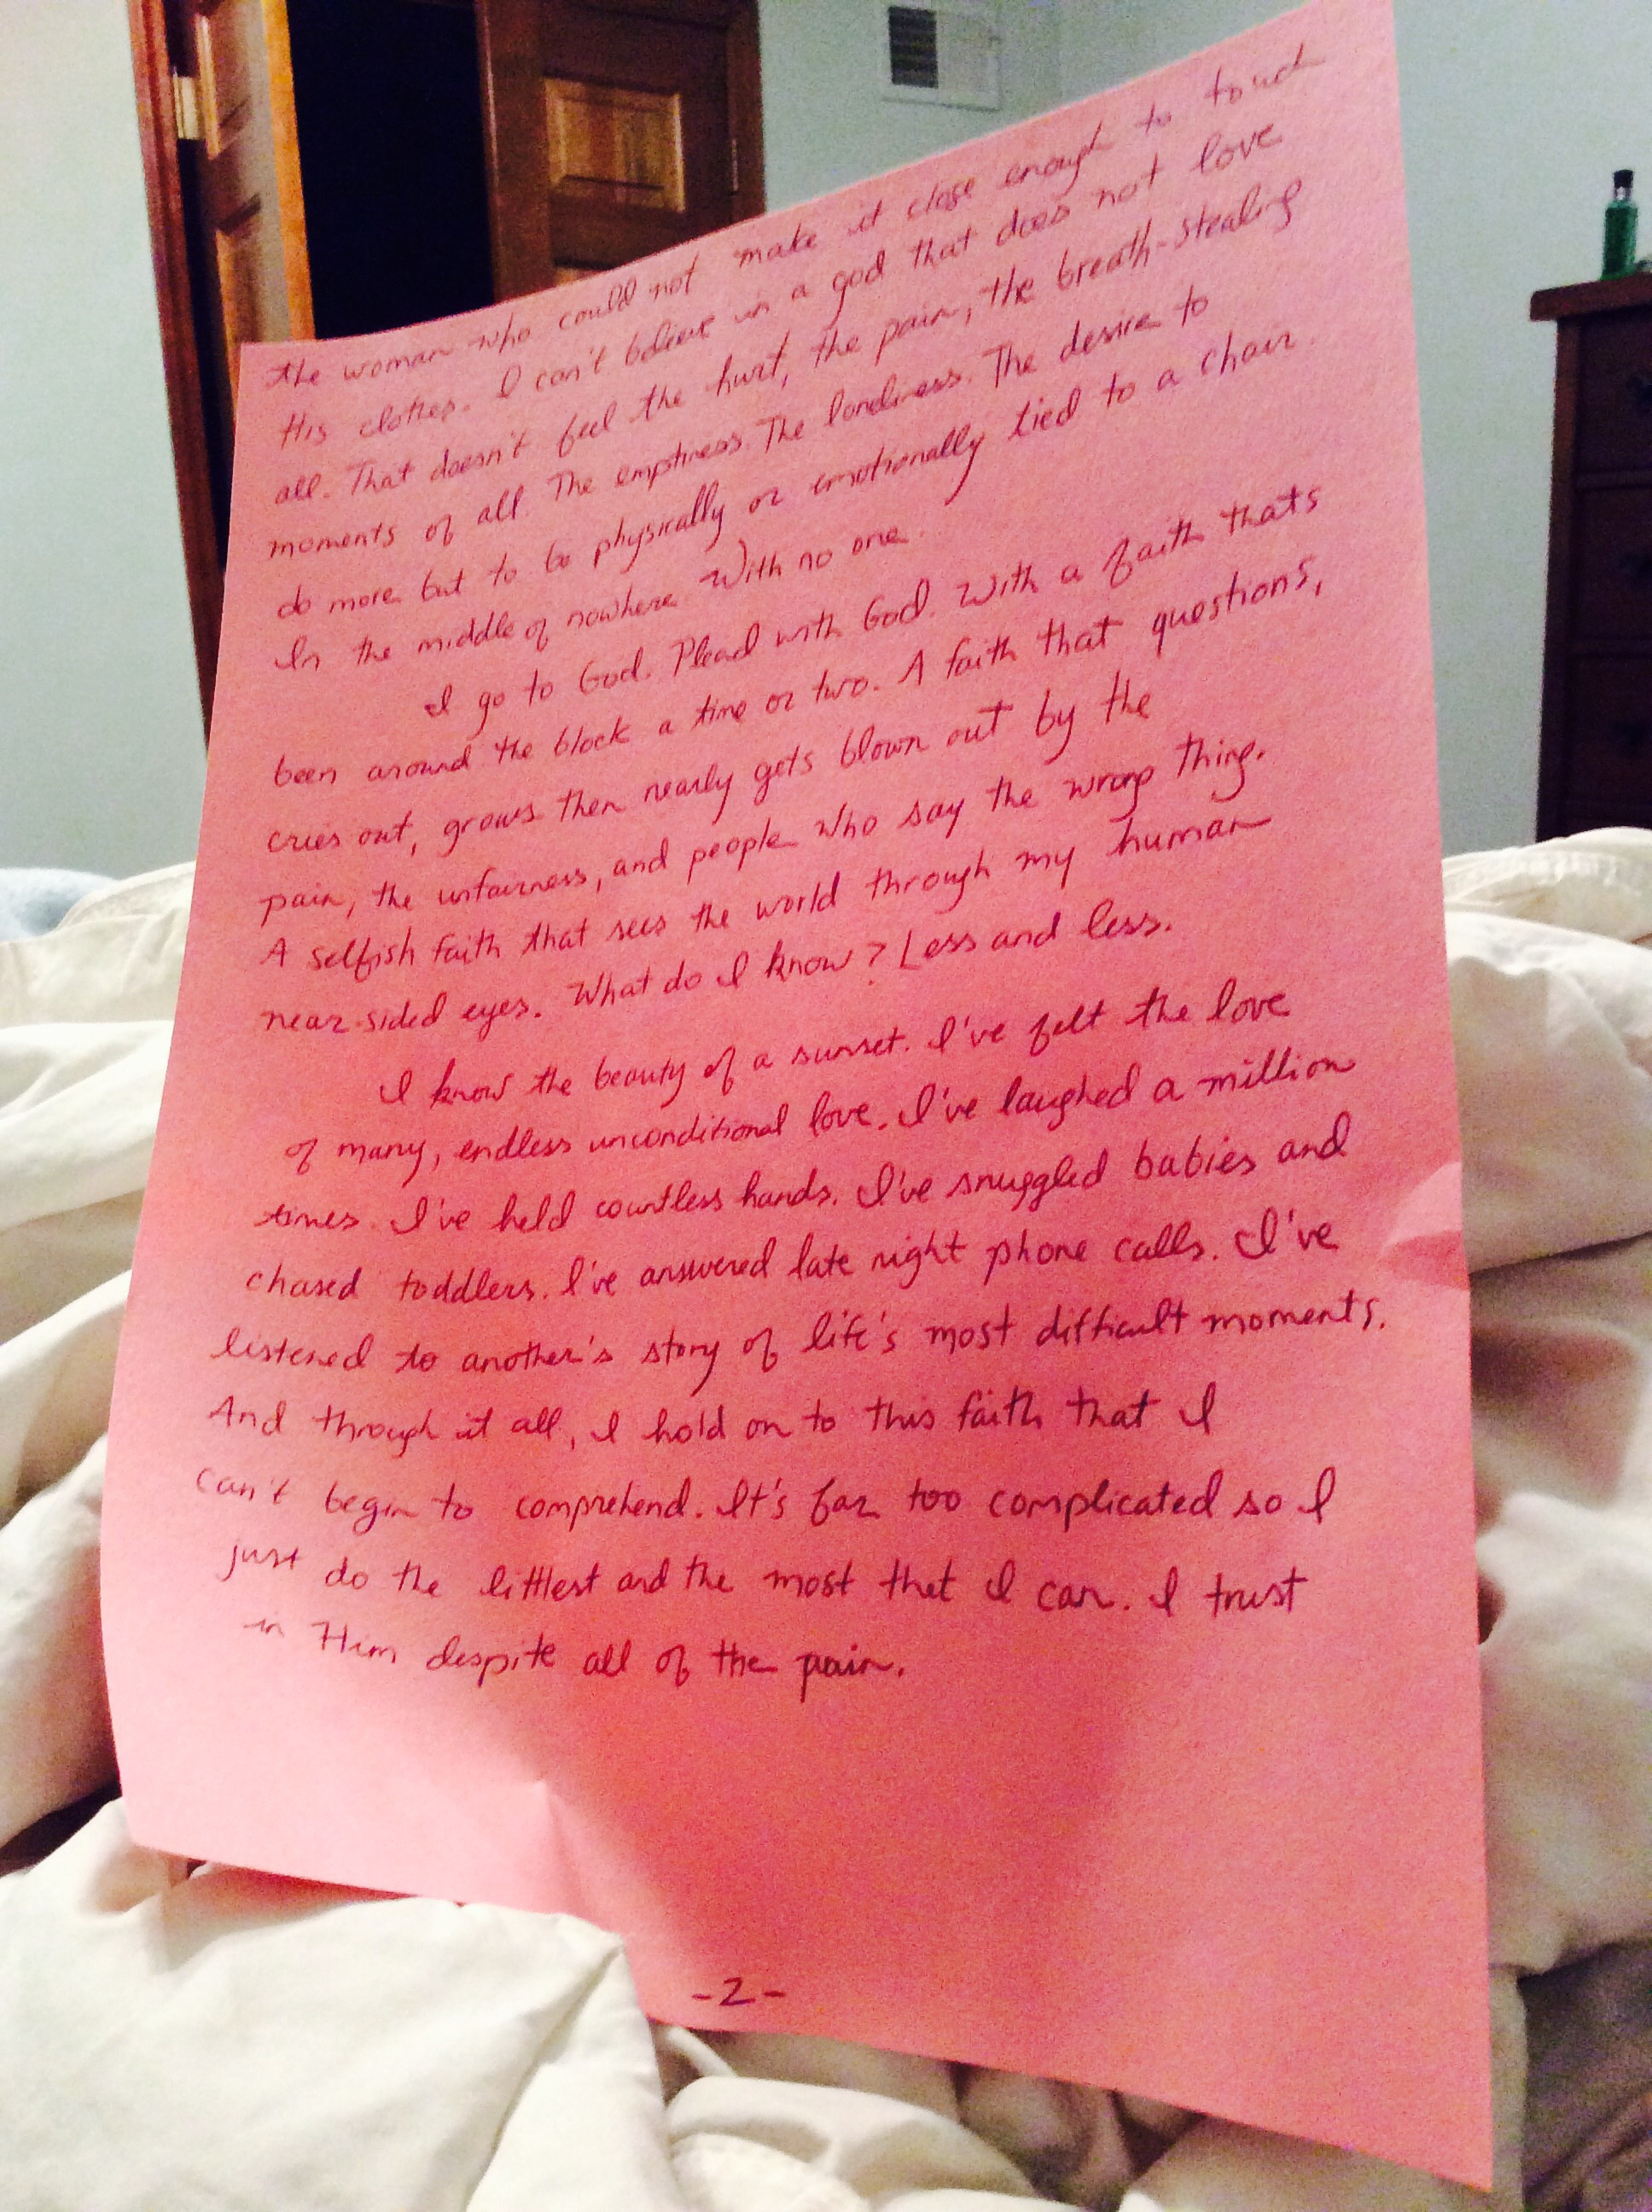 the woman who could not make it close enough to touch
His clothes. I can't believe in a god that does not love
all. That doesn't feel the hurt, the pain, the breath-stealing
moments of all. The emptiness. The loneliness. The desire to
do more but to be physically or emotionally tied to a chair.
In the middle of nowhere. With no one.
I go to God. Plead with God. With a faith thats
been around the block a time or two. A faith that questions,
cries out, grows then nearly gets blown out by the
pain, the unfairness, and people who say the wrong thing.
A selfish faith that sees the world through my human
near-sided eyes. What do I know? Less and less.
I know the beauty of a sunset. I've felt the love
of many, endless unconditional love. I've laughed a million
times. I've held countless hands. I've snuggled babies and
chased toddlers. I've answered late night phone calls. I've
listened to another's story of life's most difficult moments.
And through it all, I hold on to this faith that I
can't begin to comprehend. It's far too complicated so I
just do the littlest and the most that I can. I trust
in Him despite all of the pain.
-2-